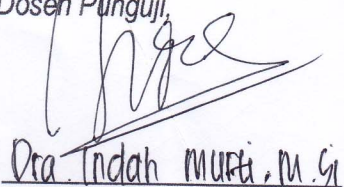 Dosen Punguji,
Dra. Indah Murti, M.Si